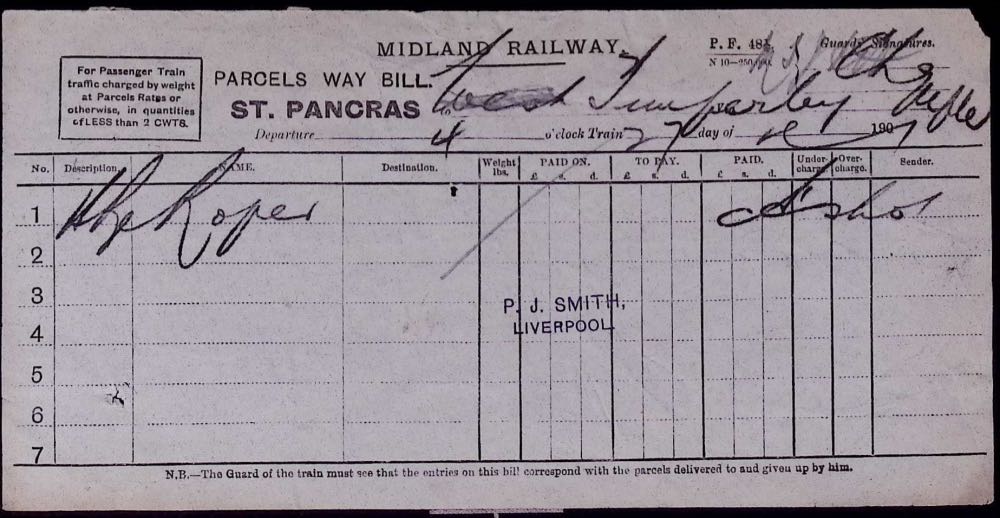 MIDLAND RAILWAY.
P. F. 48½
Guards' Signatures.
For Passenger Train
traffic charged by weight
at Parcels Rates or
otherwise, in quantities
of LESS than 2 CWTS.
PARCELS WAY BILL.
ST. PANCRAS to West Timperley
Departure 4 o'clock Train 27 day of 190
No. Description. NAME. Destination. Weight lbs. PAID ON. TO PAY. PAID. Under-charge. Over-charge. Sender.
£ s. d. £ s. d. £ s. d.
1 Roper
2
3
P. J. SMITH,
LIVERPOOL
4
5
6
7
N.B.—The Guard of the train must see that the entries on this bill correspond with the parcels delivered to and given up by him.